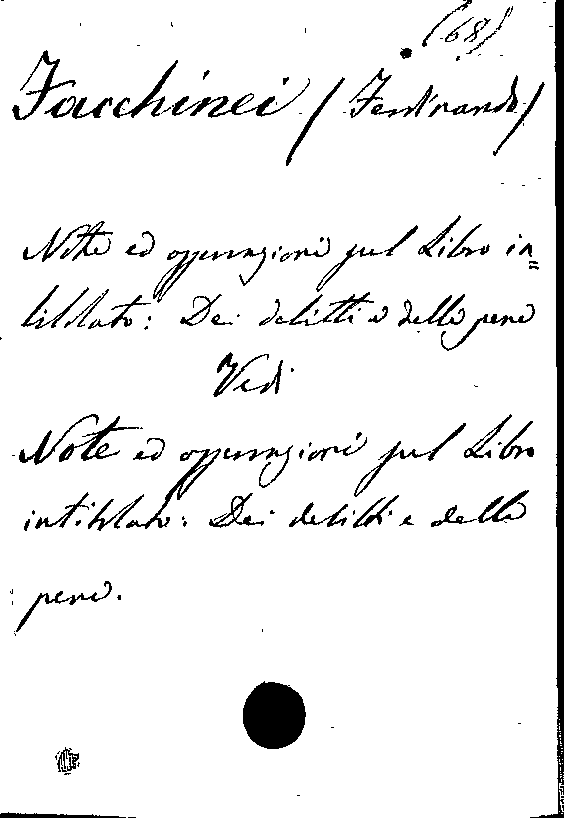 (68)
Facchinei (Ferdinando)
Note ed osservazioni sul Libro in=
titolato: Dei delitti e delle pene
Vedi
Note ed osservazioni sul Libro
intitolato: Dei delitti e delle
pene.